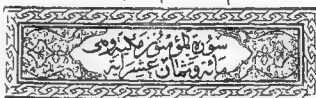 سورة المؤمنون مكية وهى
مائة وثمان عشر اية